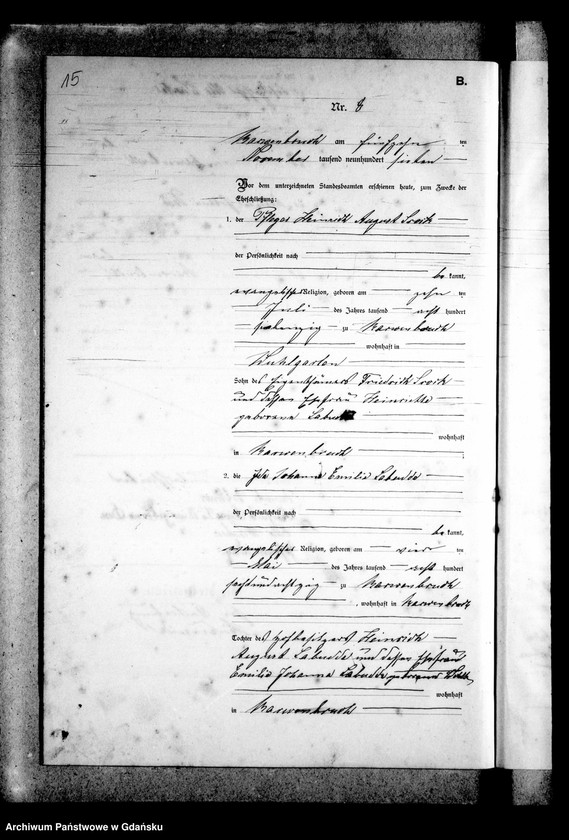 15
B.
Nr. 8
Karwenbruch am fünfzehn ten
November tausend neunhundert sieben
Vor dem unterzeichneten Standesbeamten erschienen heute, zum Zwecke der
Eheschließung:
1. der Heinrich August
der Persönlichkeit nach
be kannt,
evangelischer Religion, geboren am zehn ten
Juli des Jahres tausend acht hundert
zu Karwenbruch
wohnhaft in
Sohn des Eigenthümers Friedrich
und dessen Ehefrau Henriette
geborene
wohnhaft
in Karwenbruch
2. die Ida Johanna Emilie Labudde
der Persönlichkeit nach
be kannt,
evangelischer Religion, geboren am vier ten
Mai des Jahres tausend acht hundert
sechsundachtzig zu Karwenbruch
, wohnhaft in Karwenbruch
Tochter des Hofbesitzers Heinrich
August Labudde und dessen Ehefrau
Emilie Johanna Labudde geborene
wohnhaft
in Karwenbruch
Archiwum Państwowe w Gdańsku